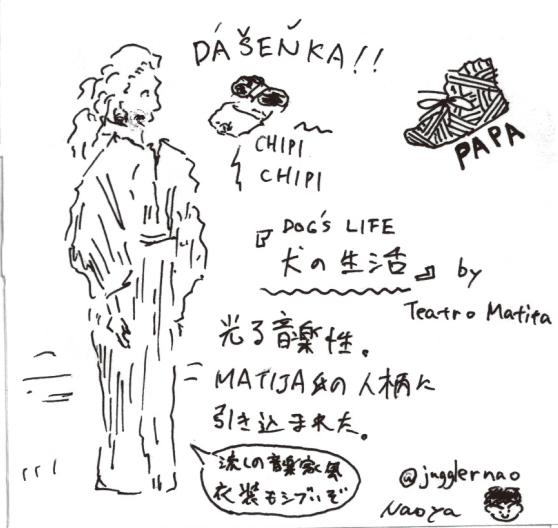 DÁŠEŇKA!!
CHIPI
CHIPI
PAPA
『DOG'S LIFE
犬の生活』 by
Teatro Matita
光る音楽性。
MATIJA氏の人柄に
引き込まれた。
流しの音楽家風
衣装もシブいぞ
@jugglernao
Naoya